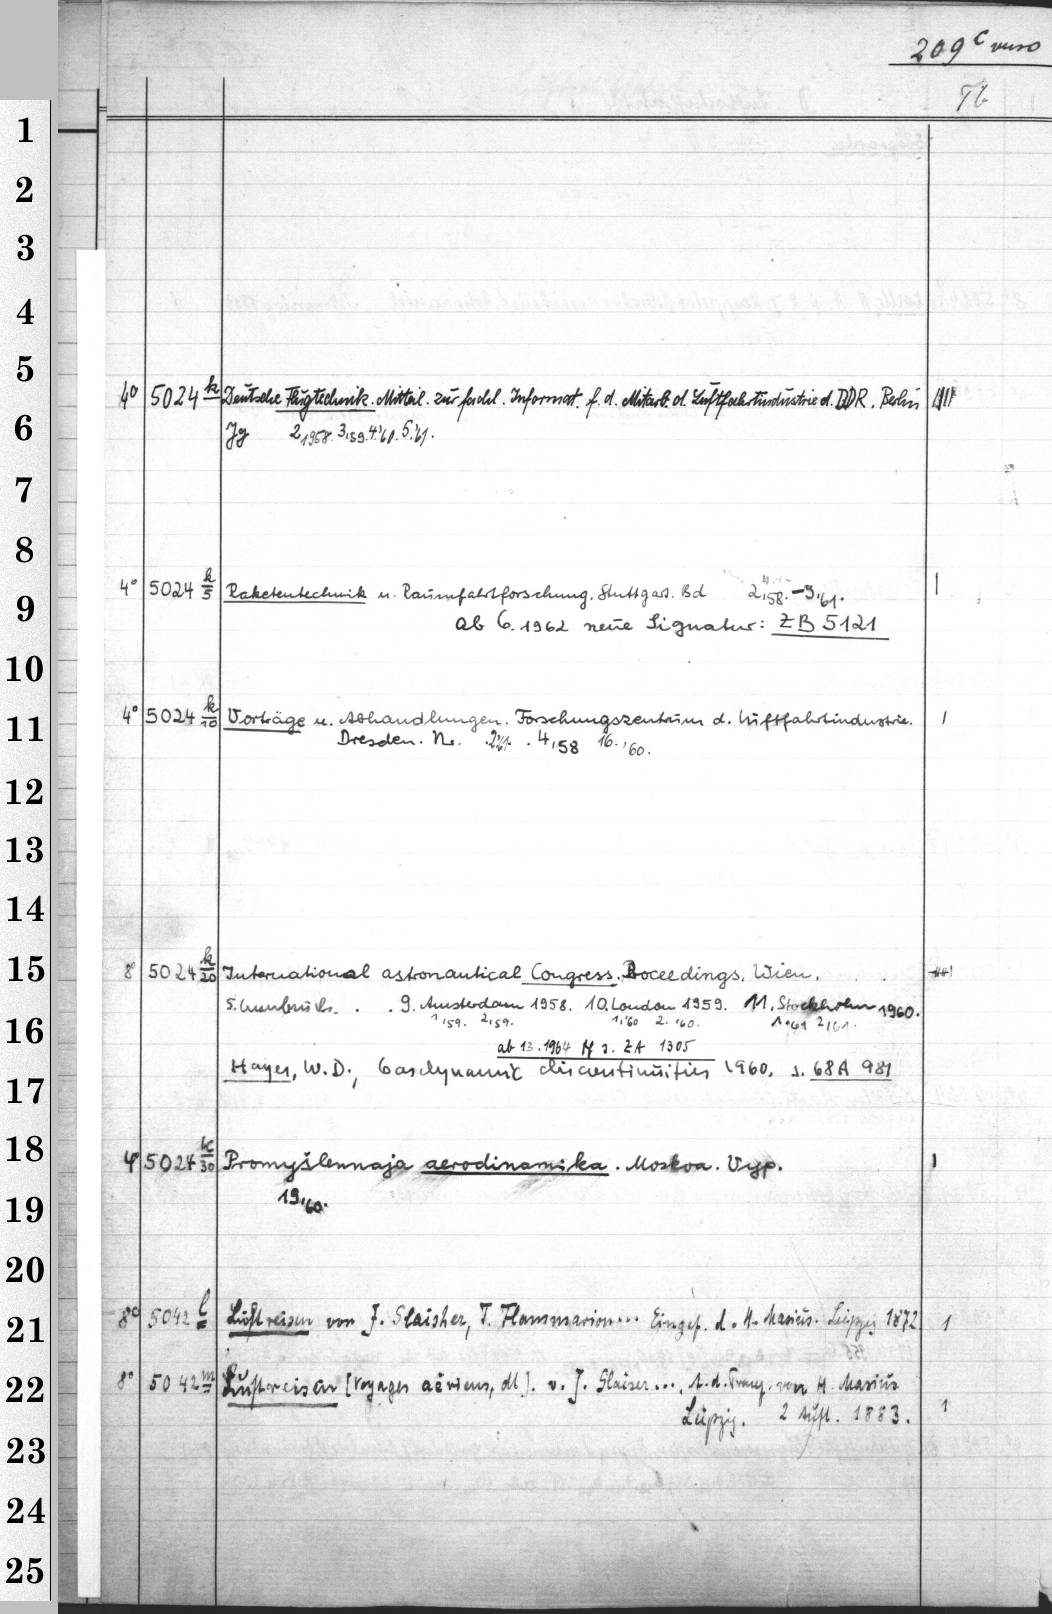 209 c verso
Tb
1
2
3
4
5
4° 5024 k Deutsche Flugtechnik. Mitteil. zur fachl. Informat. f. d. Mitarb. d. Luftfahrtindustrie d. DDR. Berlin
6
Jg 2,1958. 3,'59. 4,'60. 5,'61.
7
8
4° 5024 k/5 Raketentechnik u. Raumfahrtforschung. Stuttgart. Bd 2,'58.-5,'61. 1
9
ab 6.1962 neue Signatur: ZB 5121
10
4° 5024 k/10 Vorträge u. Abhandlungen. Forschungszentrum d. Luftfahrtindustrie. 1
11
Dresden. Nr. 2,'61. 4,'58 16.,'60.
12
13
14
15
8° 5024 k/20 International astronautical Congress. Proceedings. Wien.
9. Amsterdam 1958. 10. London 1959. 11. Stockholm 1960.
16
1,'59. 2,'59. 1,'60 2.,'60. 1,'61 2,'61.
ab 13.1964 s. ZA 1305
Hayes, W. D., Gasdynamic discontinuities 1960. s. 68 A 981
17
18
4° 5024 k/30 Promyšlennaja aerodinamika. Moskva. Vyp. 1
19
19,'60.
20
8° 5042 l Luftreisen von J. Glaisher, T. Flammarion... Eingef. d. H. Masius. Leipzig 1872 1
21
8° 5042 m Luftreisen [Voyages aériens, dt]. v. J. Glaiser..., A. d. Franz. von H. Masius
22
Leipzig. 2 Aufl. 1883. 1
23
24
25